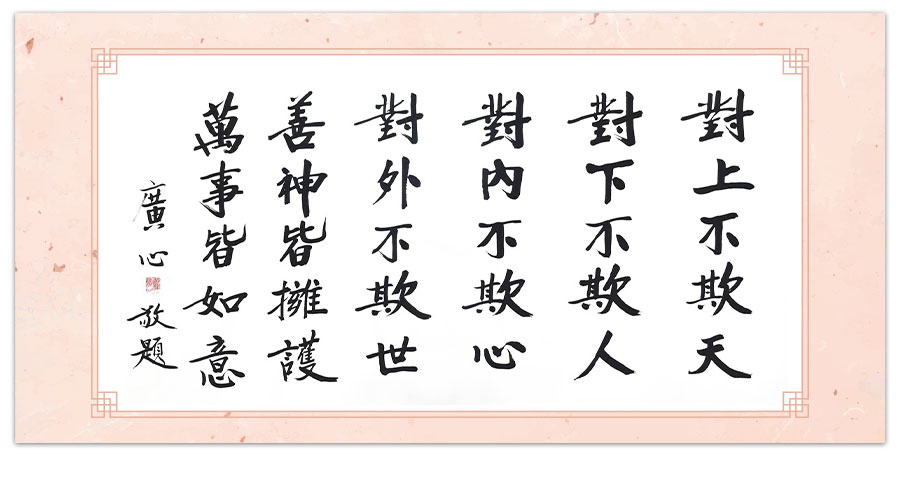 對上不欺天
對下不欺人
對內不欺心
對外不欺世
善神皆擁護
萬事皆如意
廣心 敬題